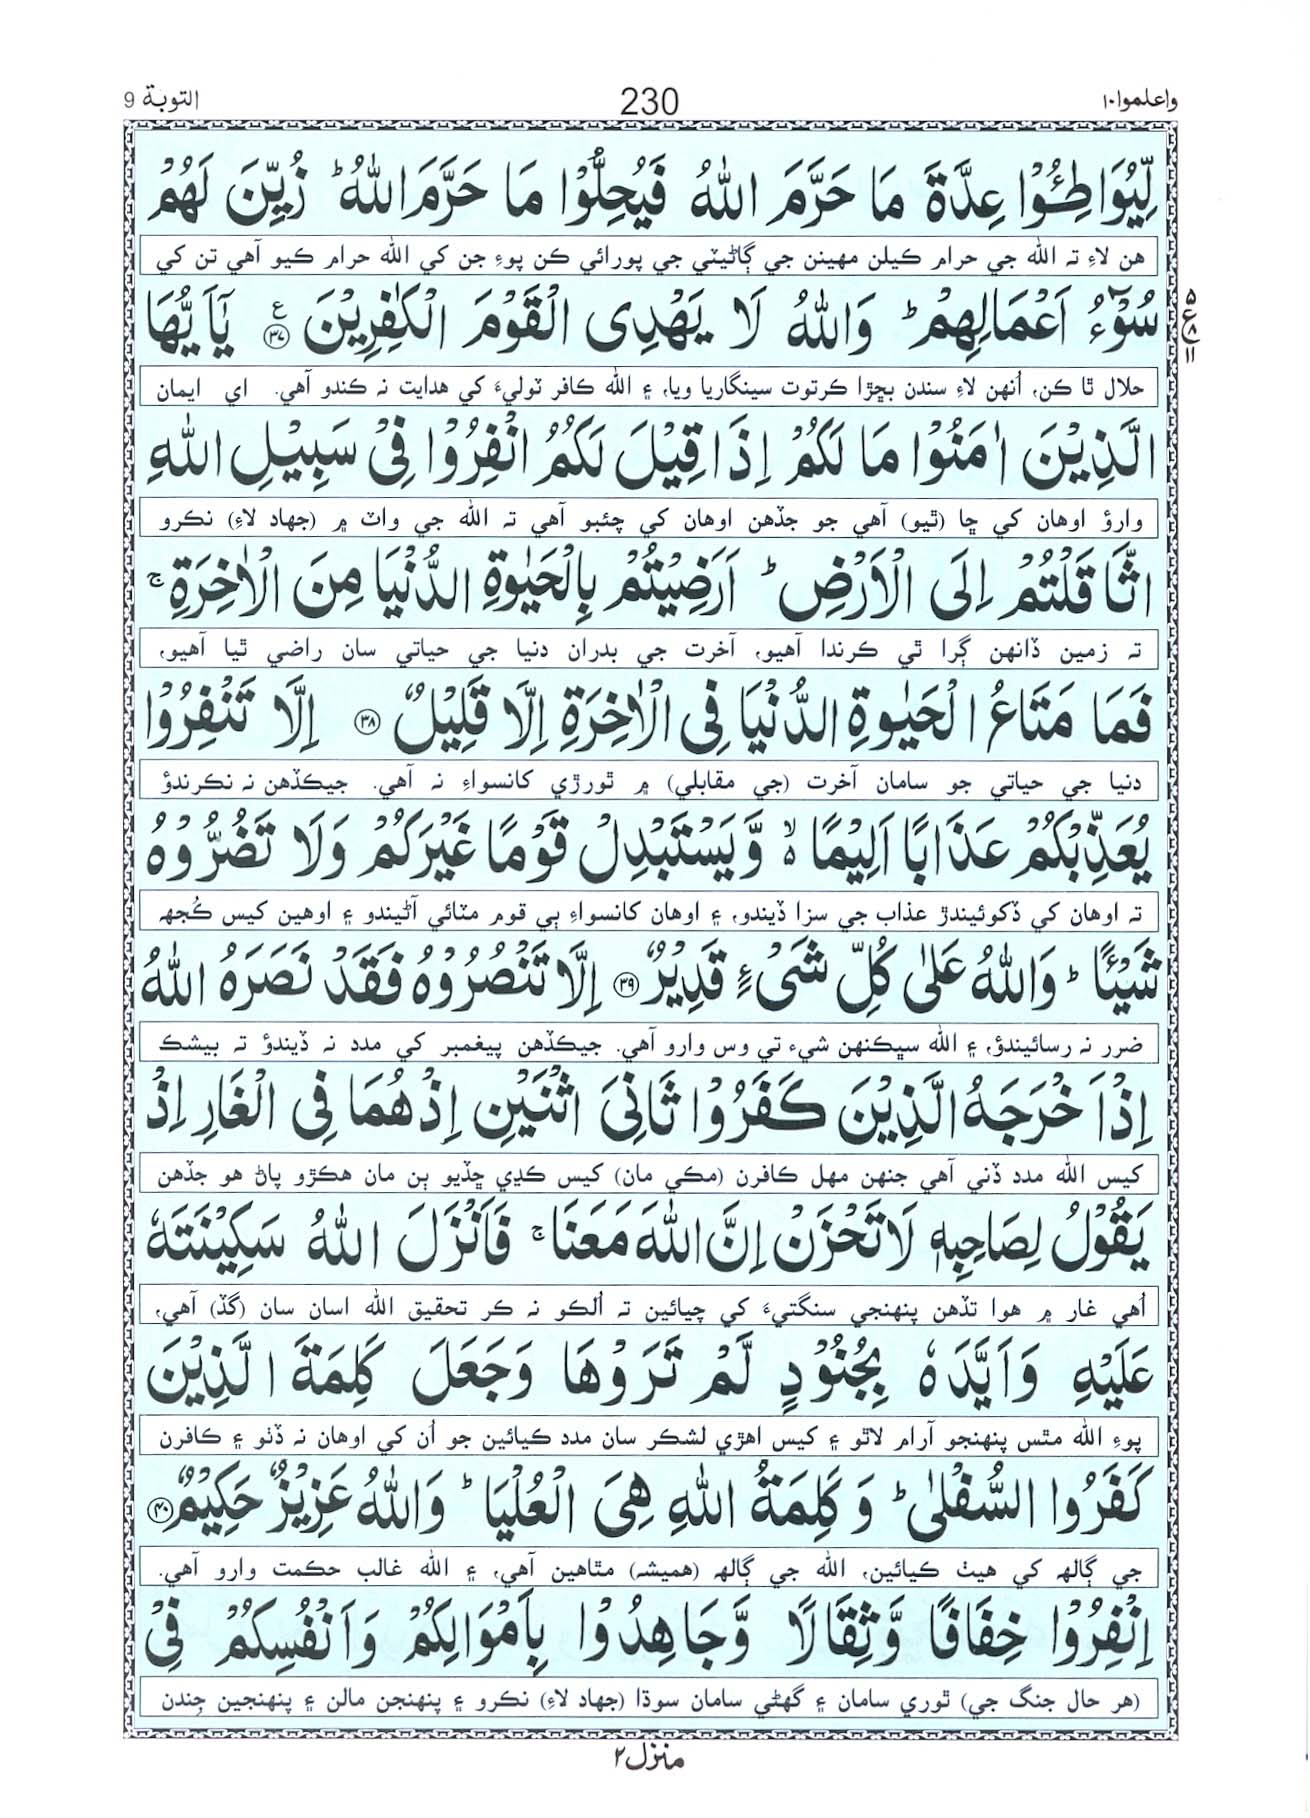 واعلموا١٠ 230 التوبة 9
لِّيُوَاطِـُٔوْا عِدَّةَ مَا حَرَّمَ اللّٰهُ فَيُحِلُّوْا مَا حَرَّمَ اللّٰهُ ؕ زُيِّنَ لَهُمْ
هن لاءِ ته الله جي حرام ڪيلن مهينن جي ڳاڻيٽي جي پورائي ڪن پوءِ جن کي الله حرام ڪيو آهي تن کي
سُوْٓءُ اَعْمَالِهِمْ ؕ وَاللّٰهُ لَا يَهْدِى الْقَوْمَ الْكٰفِرِيْنَ ۧ ﴿۳۷﴾ يٰٓاَيُّهَا
ع ۵ ۸ ۱۱
حلال ٿا ڪن، اُنهن لاءِ سندن بڇڙا ڪرتوت سينگاريا ويا، ۽ الله ڪافر ٽوليءَ کي هدايت نه ڪندو آهي. اي ايمان
الَّذِيْنَ اٰمَنُوْا مَا لَكُمْ اِذَا قِيْلَ لَكُمُ انْفِرُوْا فِىْ سَبِيْلِ اللّٰهِ
وارؤ اوهان کي ڇا (ٿيو) آهي جو جڏهن اوهان کي چئبو آهي ته الله جي واٽ ۾ (جهاد لاءِ) نڪرو
اثَّاقَلْتُمْ اِلَى الْاَرْضِ ؕ اَرَضِيْتُمْ بِالْحَيٰوةِ الدُّنْيَا مِنَ الْاٰخِرَةِ ۚ
ته زمين ڏانهن ڳرا ٿي ڪرندا آهيو، آخرت جي بدران دنيا جي حياتي سان راضي ٿيا آهيو،
فَمَا مَتَاعُ الْحَيٰوةِ الدُّنْيَا فِى الْاٰخِرَةِ اِلَّا قَلِيْلٌ ﴿۳۸﴾ اِلَّا تَنْفِرُوْا
دنيا جي حياتي جو سامان آخرت (جي مقابلي) ۾ ٿورڙي کانسواءِ نه آهي. جيڪڏهن نه نڪرندؤ
يُعَذِّبْكُمْ عَذَابًا اَلِيْمًا ۙ وَّيَسْتَبْدِلْ قَوْمًا غَيْرَكُمْ وَلَا تَضُرُّوْهُ
ته اوهان کي ڏکوئيندڙ عذاب جي سزا ڏيندو، ۽ اوهان کانسواءِ ٻي قوم مٽائي آڻيندو ۽ اوهين کيس ڪُجهه
شَيْـًٔا ؕ وَاللّٰهُ عَلٰى كُلِّ شَىْءٍ قَدِيْرٌ ﴿۳۹﴾ اِلَّا تَنْصُرُوْهُ فَقَدْ نَصَرَهُ اللّٰهُ
ضرر نه رسائيندؤ، ۽ الله سڀڪنهن شيء تي وس وارو آهي. جيڪڏهن پيغمبر کي مدد نه ڏيندؤ ته بيشڪ
اِذْ اَخْرَجَهُ الَّذِيْنَ كَفَرُوْا ثَانِىَ اثْنَيْنِ اِذْ هُمَا فِى الْغَارِ اِذْ
کيس الله مدد ڏني آهي جنهن مهل ڪافرن (مڪي مان) کيس ڪڍي ڇڏيو ٻن مان هڪڙو پاڻ هو جڏهن
يَقُوْلُ لِصَاحِبِهٖ لَا تَحْزَنْ اِنَّ اللّٰهَ مَعَنَا ۚ فَاَنْزَلَ اللّٰهُ سَكِيْنَتَهٗ
اُهي غار ۾ هوا تڏهن پنهنجي سنگتيءَ کي چيائين ته اُلڪو نه ڪر تحقيق الله اسان سان (گڏ) آهي،
عَلَيْهِ وَاَيَّدَهٗ بِجُنُوْدٍ لَّمْ تَرَوْهَا وَجَعَلَ كَلِمَةَ الَّذِيْنَ
پوءِ الله مٿس پنهنجو آرام لاٿو ۽ کيس اهڙي لشڪر سان مدد ڪيائين جو اُن کي اوهان نه ڏٺو ۽ ڪافرن
كَفَرُوا السُّفْلٰى ؕ وَكَلِمَةُ اللّٰهِ هِىَ الْعُلْيَا ؕ وَاللّٰهُ عَزِيْزٌ حَكِيْمٌ ﴿۴۰﴾
جي ڳالهه کي هيٺ ڪيائين، الله جي ڳالهه (هميشه) مٿاهين آهي، ۽ الله غالب حڪمت وارو آهي.
اِنْفِرُوْا خِفَافًا وَّثِقَالًا وَّجَاهِدُوْا بِاَمْوَالِكُمْ وَاَنْفُسِكُمْ فِىْ
(هر حال جنگ جي) ٿوري سامان ۽ گهڻي سامان سوڌا (جهاد لاءِ) نڪرو ۽ پنهنجن مالن ۽ پنهنجين جِندن
منزل٢